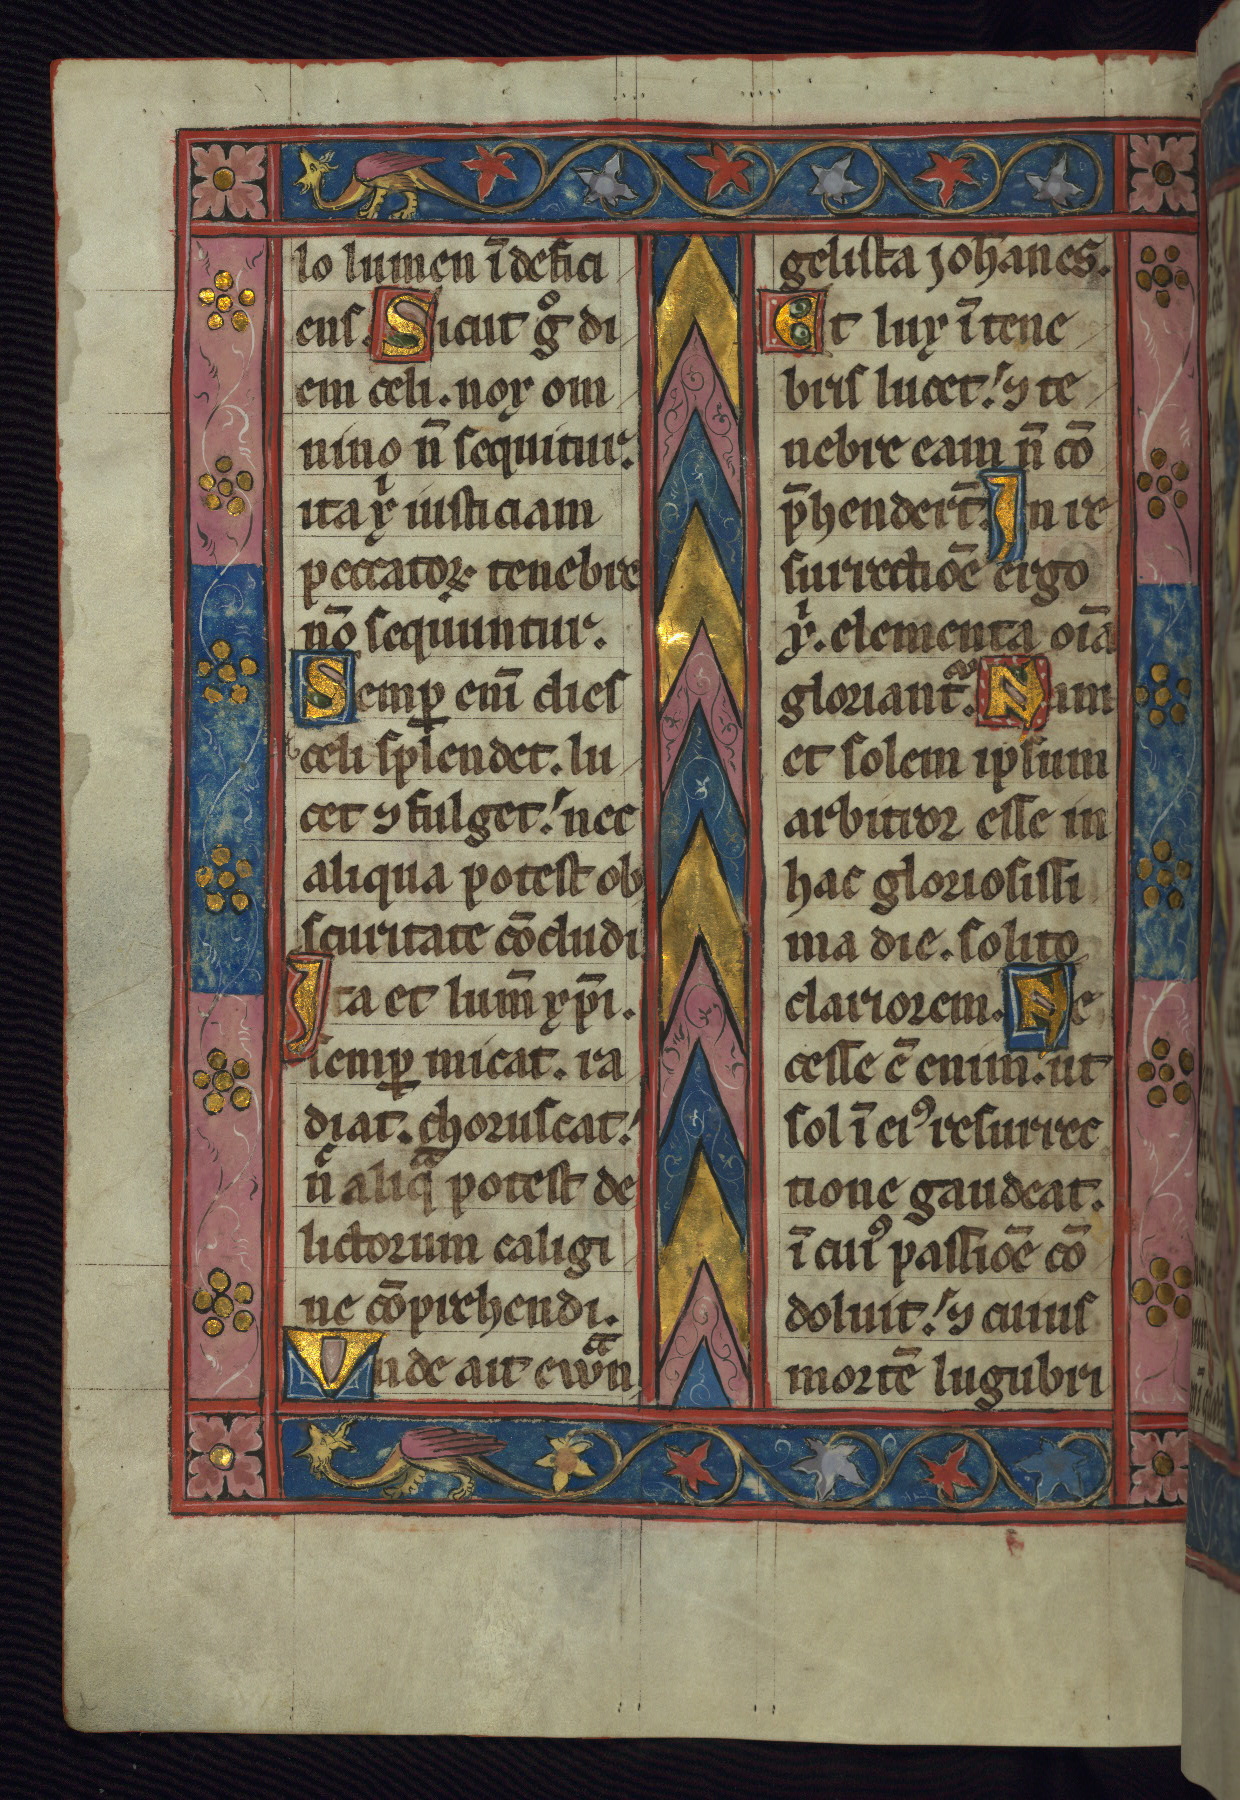 lo lumen īdefici
ens. Sicut gͦ di
em celi. nox om
nino n̄ sequitur.
ita xͥ iusticiam
peccatoꝝ tenebre
nō sequuntur.
Semꝑ enī dies
celi splendet. lu
cet ⁊ fulget. nec
aliqua potest ob
scuritate cōcludi
Ita et lum̄ xp̄i.
semꝑ micat. ra
diat. choruscat.
nͨ aliqᷓ potest de
lictorum caligi
ne cōprehendi.
Unde ait ewᷓn
gelista johanes.
Et lux ī tene
bris lucet. ⁊ te
nebre eam n̄ cō
p̄hendert̄. In re
surrectiōe ergo
xͥ. elementa oīa
gloriant᷑. Nam
et solem ipsum
arbitror esse in
hac gloriosissi
ma die. solito
clariorem. Ne
cesse ē enim. ut
sol ī eiꝰ resurrec
tione gaudeat.
ī cuiꝰ passiōe cō
doluit. ⁊ cuius
mortē lugubri